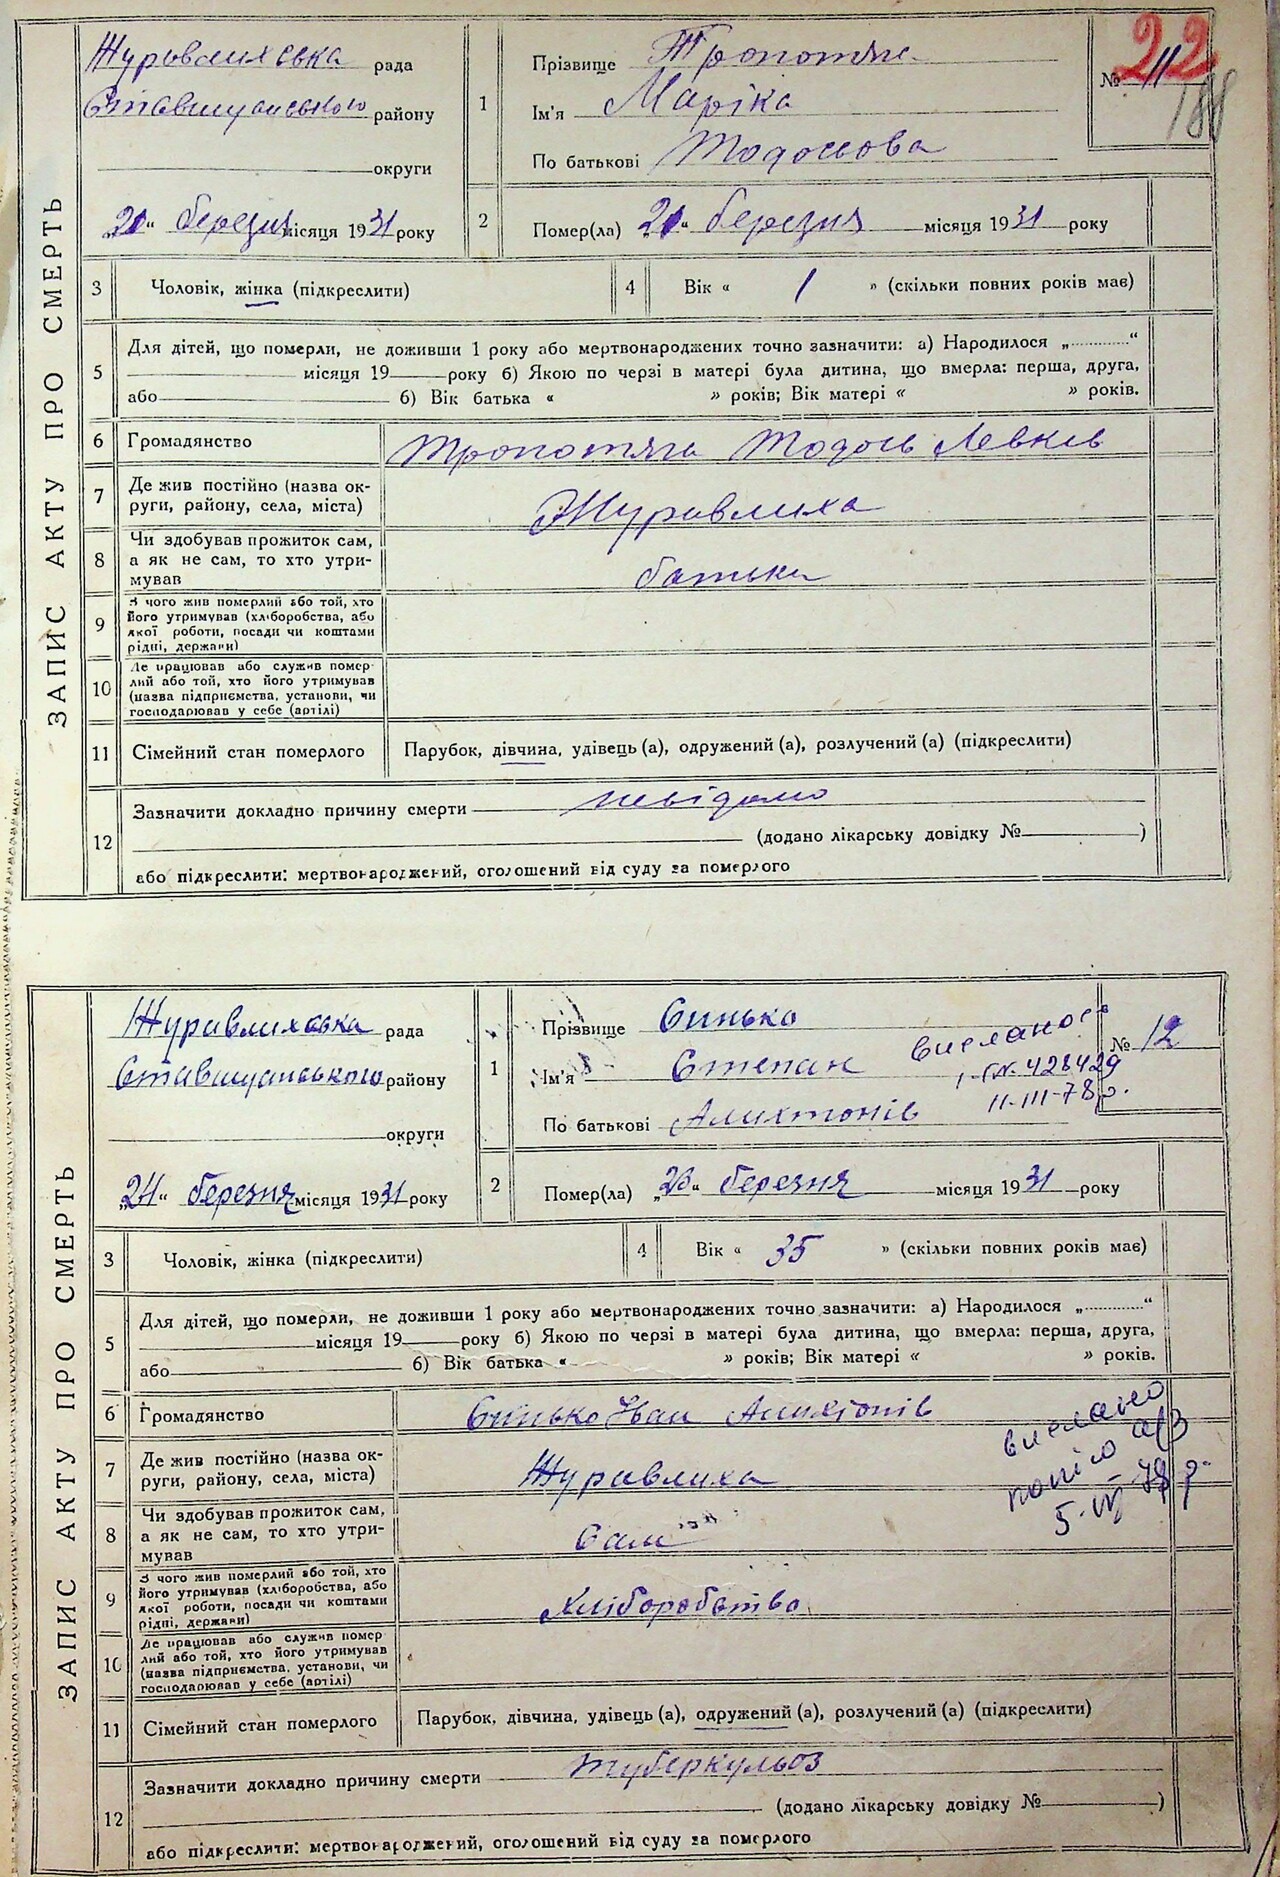 ЗАПИС АКТУ ПРО СМЕРТЬ
Журавлихська рада
Ставищанського району
округи
„21“ березня місяця 1931 року
1
Прізвище Тропотяга
Ім'я Маріка
По батькові Тодосьова
№ 11
22
188
2 Помер(ла) „21“ березня місяця 1931 року
3 Чоловік, жінка (підкреслити)
4 Вік « 1 » (скільки повних років має)
5 Для дітей, що померли, не доживши 1 року або мертвонароджених точно зазначити: а) Народилося „............“
місяця 19 року б) Якою по черзі в матері була дитина, що вмерла: перша, друга,
або б) Вік батька « » років; Вік матері « » років.
6 Громадянство Тропотяга Тодось Левків
7 Де жив постійно (назва ок-
руги, району, села, міста) Журавлиха
8 Чи здобував прожиток сам,
а як не сам, то хто утри-
мував батьки
9 З чого жив померлий або той, хто
його утримував (хліборобства, або
якої роботи, посади чи коштами
рідні, держави)
10 Де працював або служив помер-
лий або той, хто його утримував
(назва підприємства, установи, чи
господарював у себе (артілі)
11 Сімейний стан померлого Парубок, дівчина, удівець (а), одружений (а), розлучений (а) (підкреслити)
12 Зазначити докладно причину смерти невідомо
(додано лікарську довідку № )
або підкреслити: мертвонароджений, оголошений від суду за померлого
ЗАПИС АКТУ ПРО СМЕРТЬ
Журавлихська рада
Ставищанського району
округи
„24“ березня місяця 1931 року
1
Прізвище Синько
Ім'я Степан
По батькові
№ 12
428429
11-III-78 р.
2 Помер(ла) березня місяця 1931 року
3 Чоловік, жінка (підкреслити)
4 Вік « 35 » (скільки повних років має)
5 Для дітей, що померли, не доживши 1 року або мертвонароджених точно зазначити: а) Народилося „............“
місяця 19 року б) Якою по черзі в матері була дитина, що вмерла: перша, друга,
або б) Вік батька « » років; Вік матері « » років.
6 Громадянство Синько Іван
7 Де жив постійно (назва ок-
руги, району, села, міста) Журавлиха
вислано
8 Чи здобував прожиток сам,
а як не сам, то хто утри-
мував Сам
9 З чого жив померлий або той, хто
його утримував (хліборобства, або
якої роботи, посади чи коштами
рідні, держави) Хліборобство
10 Де працював або служив помер-
лий або той, хто його утримував
(назва підприємства, установи, чи
господарював у себе (артілі)
11 Сімейний стан померлого Парубок, дівчина, удівець (а), одружений (а), розлучений (а) (підкреслити)
12 Зазначити докладно причину смерти туберкульоз
(додано лікарську довідку № )
або підкреслити: мертвонароджений, оголошений від суду за померлого